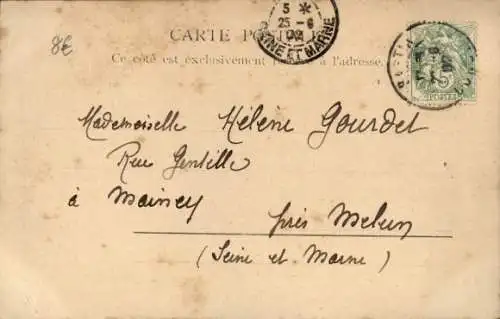 8€
CARTE POSTALE
Ce côté est exclusivement à l'adresse.
5 *
25 - 6
02
ET MARNE
Mademoiselle Hélène Gourdet
Rue Gentille
à Maincy
près Melun
(Seine et Marne)